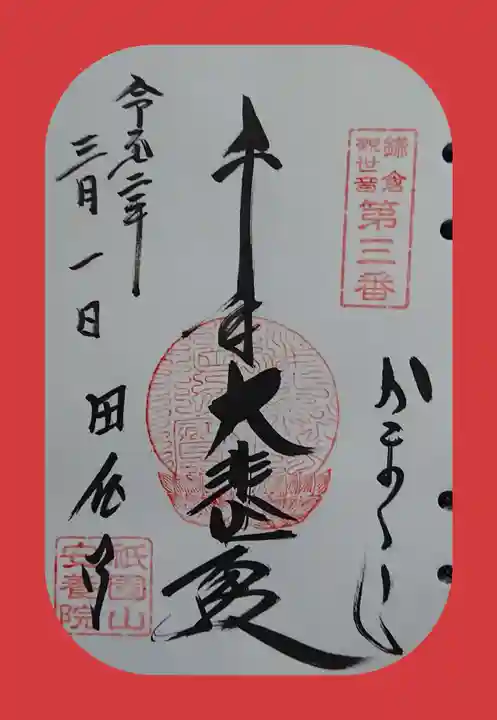 鎌倉
観世音
第三番
かまくら
千手大悲殿
令和二年
三月一日
田代寺
祇園山
安養院